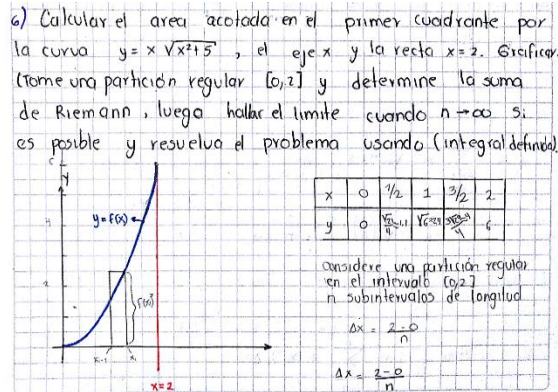 6) Calcular el area acotada en el primer cuadrante por
la curva y = x √x²+5 , el eje x y la recta x = 2. Graficar.
(Tome una partición regular [0,2] y determine la suma
de Riemann, luego hallar el limite cuando n→∞ si
es posible y resuelva el problema usando (integral definida).
y
y = f(x)
4
2
f(xi)
xi-1 xi
x=2
x 0 1/2 1 3/2 2
y 0 √21/4 ≈ 1,1 √6 ≈ 2,4 6
considere una partición regular
en el intervalo [0,2]
n subintervalos de longitud
Δx = 2-0/n
Δx = 2-0/n